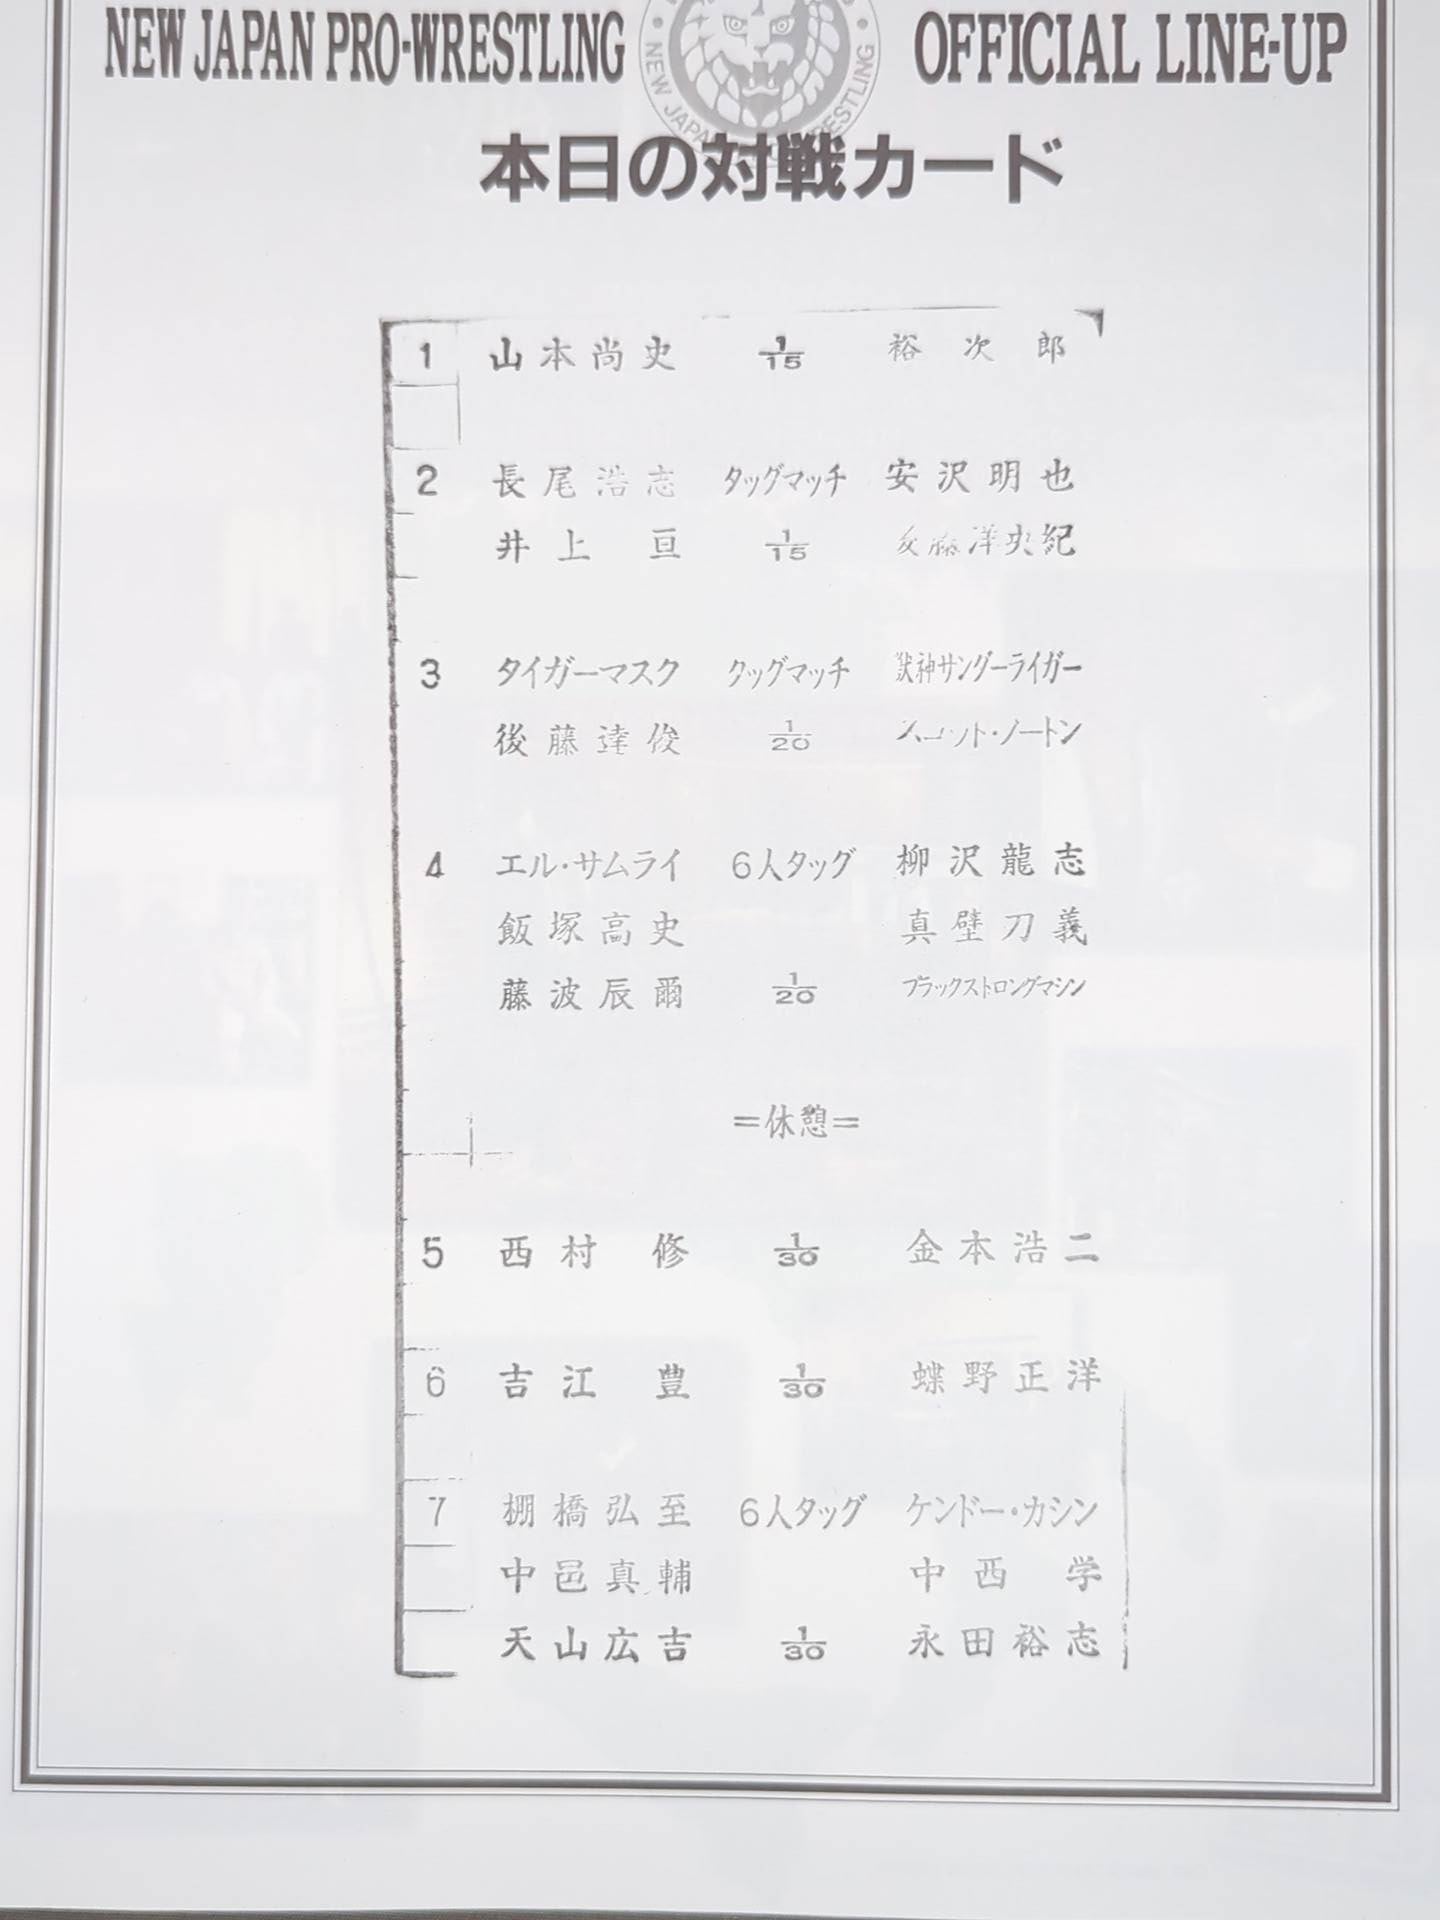 NEW JAPAN PRO-WRESTLING OFFICIAL LINE-UP
NEW JAPAN PRO-WRESTLING
本日の対戦カード
1 山本尚史 1/15 裕次郎
2 長尾浩志 タッグマッチ 安沢明也
井上亘 1/15 安藤洋央紀
3 タイガーマスク タッグマッチ 獣神サンダーライガー
後藤達俊 1/20 スコット・ノートン
4 エル・サムライ 6人タッグ 柳沢龍志
飯塚高史 真壁刀義
藤波辰爾 1/20 ブラックストロングマシン
=休憩=
5 西村修 1/30 金本浩二
6 吉江豊 1/30 蝶野正洋
7 棚橋弘至 6人タッグ ケンドー・カシン
中邑真輔 中西学
天山広吉 1/30 永田裕志